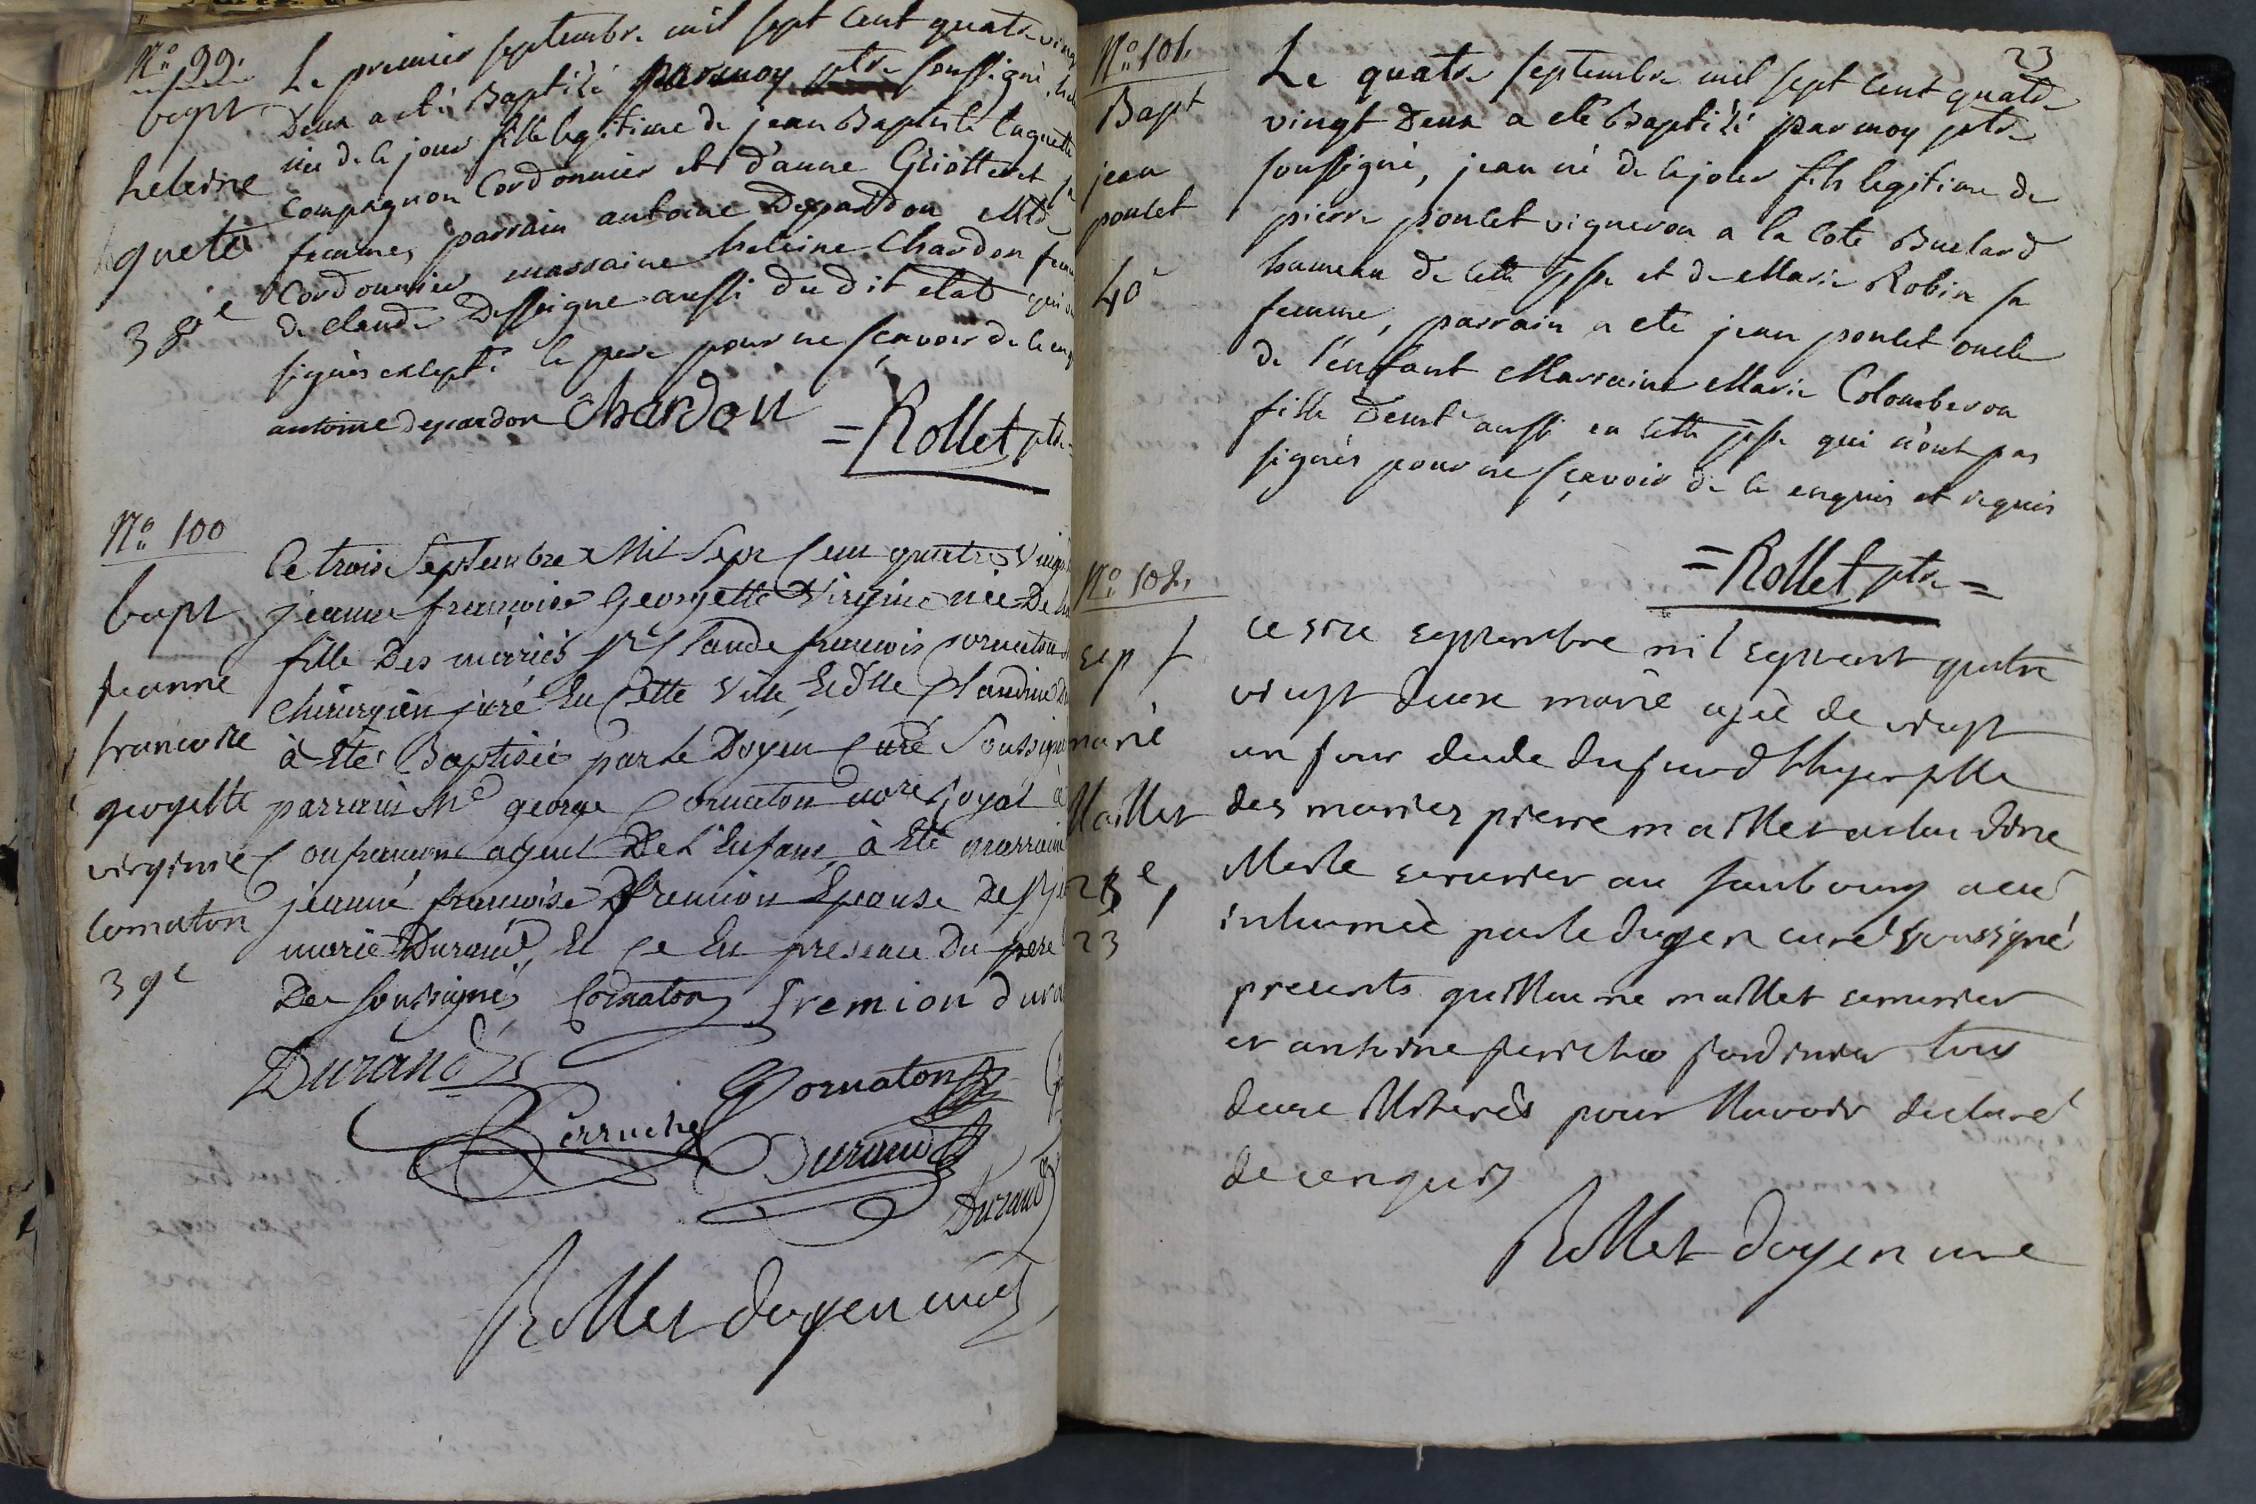 N.o 99.
bapt
heleine
quete
38e
Le premier septembre mil sept cent quatre ving
Deux a eté Baptisé par moy ptre soussigné,
née de ce jour fille legitime de jean Baptiste Laquette
compagnon Cordonnier et d'anne Griottet
femme, parrain antoine Depardon Md
Cordonnier marraine heleine Chardon
de claude Dessaigne aussi du dit etat
signés excepté le pere pour ne sçavoir de ce
antoine depardon Chardon
=Rollet ptre
N.o 100
bapt
jeanne
francoise
georgette
virginie
cornaton
39e
Ce trois Septembre Mil Sept Cent quatre Vingt
jeanne francoise Georgette Virginie née De
fille Des mariés Sr Claude francois Cornaton
chirurgien juré En Cette Ville Et Dlle Claudine
à Eté Baptisée par le Doyen Curé Soussigné
parrain Me george Cornaton no.re Royal à
Confrancon ayeul De L'Enfant à Eté marraine
jeanne francoise fremion Epouse De Sr
marie Durand, Et Ce En presence Du pere
Des soussignés Cornaton fremion
Durand
Cornaton
Perruche
Durand
Durand
Rollet doyen curé
23
N.o 101.
Bapt
jean
poulet
40e
Le quatre septembre mil sept cent quatre
vingt Deux a eté Baptisé par moy ptre
soussigné, jean né de ce jour fils legitime de
pierre poulet vigneron a la Cote Buelard
hameau de cette psse et de Marie Robin sa
femme, parrain a eté jean poulet oncle
de l'enfant Marraine Marie Colomberon
fille Demt aussi en cette psse qui n'ont pas
signés pour ne sçavoir de ce enquis et requis
=Rollet ptre=
N.o 102.
sep t
marie
Maillet
23
ce sixe septembre mil septcent quatre
vingt deux marie agée de vingt
un jour
des mariés pierre maillet
Merle serrurier au faubourg a eté
inhumeé par le doyen curé soussigné
presents guillaume maillet serrurier
et antoine jardinier tous
deux illiterés pour l'avoir declaré
de ce enquis
Rollet doyen curé